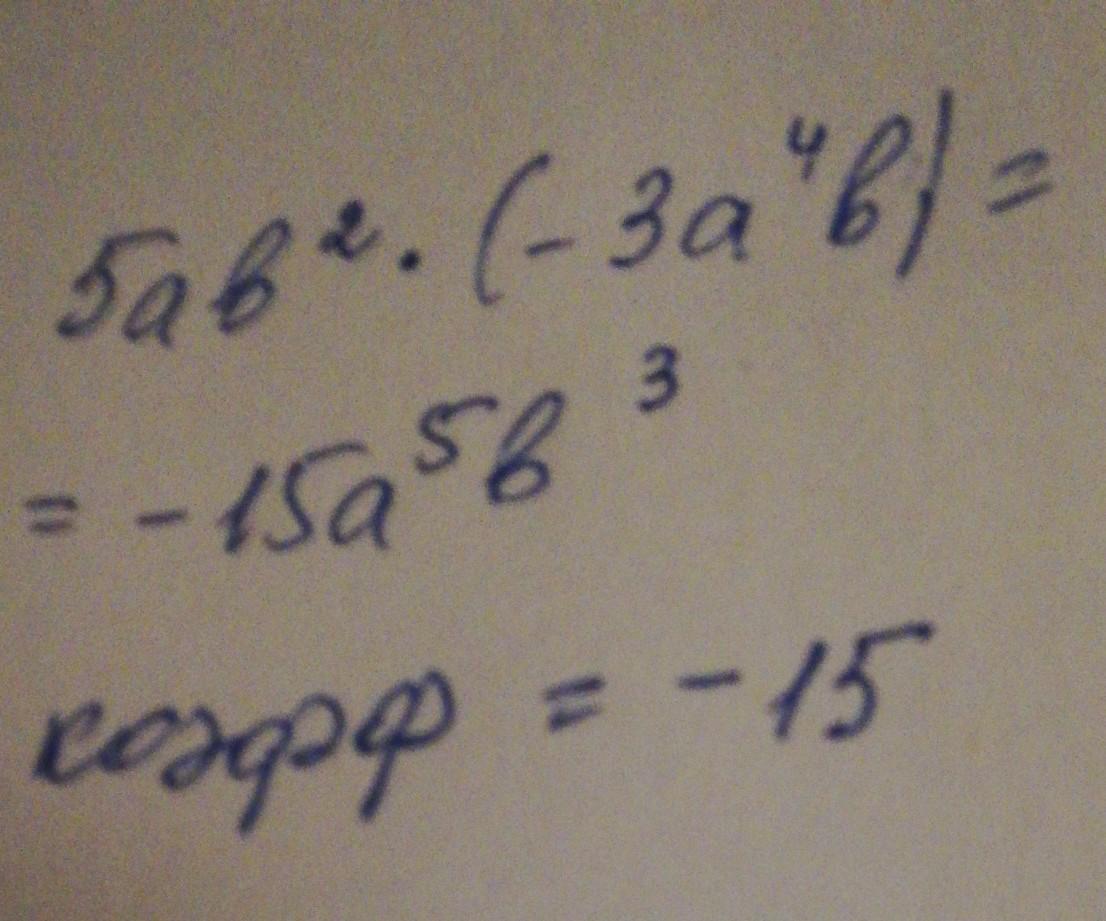 5ab²·(-3a⁴b)=
=-15a⁵b³
коэфф=-15